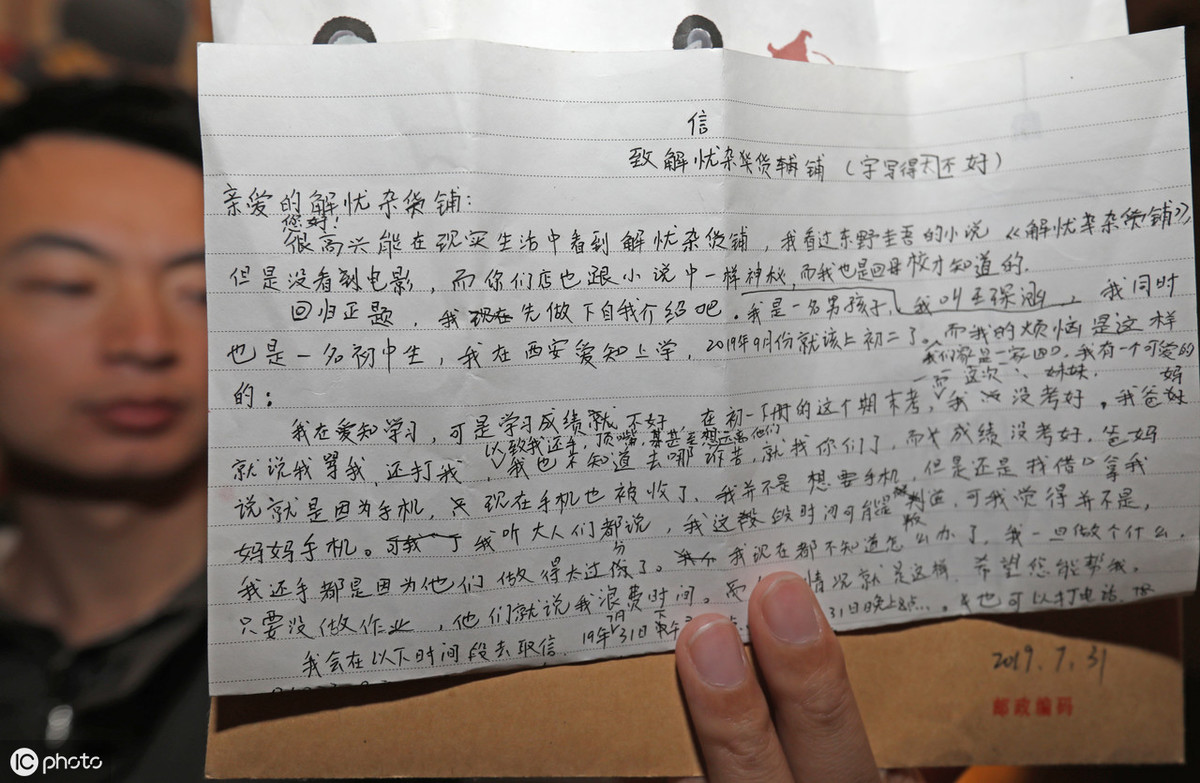 信
致解忧杂货铺(字写得不好)
亲爱的解忧杂货铺:
您好!
很高兴能在现实生活中看到解忧杂货铺,我看过东野圭吾的小说《解忧杂货铺》
但是没看到电影,而你们店也跟小说中一样神秘,而我也是回母校才知道的.
回归正题,我现在先做下自我介绍吧.我是一名男孩子,我叫王 我同时
也是一名初中生,我在西安爱知上学,2019年9月份就该上初二了。而我的烦恼是这样
我们家是一家四口,我有一个可爱的
的: 妹妹.
我在爱知学习,可是学习成绩就不好,在初一下册的这个期末考,我没考好。我爸妈
以致我还手,顶嘴,甚至想远离他们
就说我骂我,还打我,我也不知道去哪诉苦,就找你们了,而成绩没考好,爸妈
说就是因为手机,现在手机也被收了,我并不是想要手机,但是还是找借口拿我
妈妈手机。我听大人们都说,我这段时间可能是叛逆,可我觉得并不是,
我还手都是因为他们做得太过份了。我现在都不知道怎么办了,我一旦做个什么,
只要没做作业,他们就说我浪费时间。情况就是这样,希望您能帮我。
我会在以下时间段去取信. 19年7月31日下午 31日晚上8点...。我也可以打电话
2019.7.31
邮政编码
IC photo